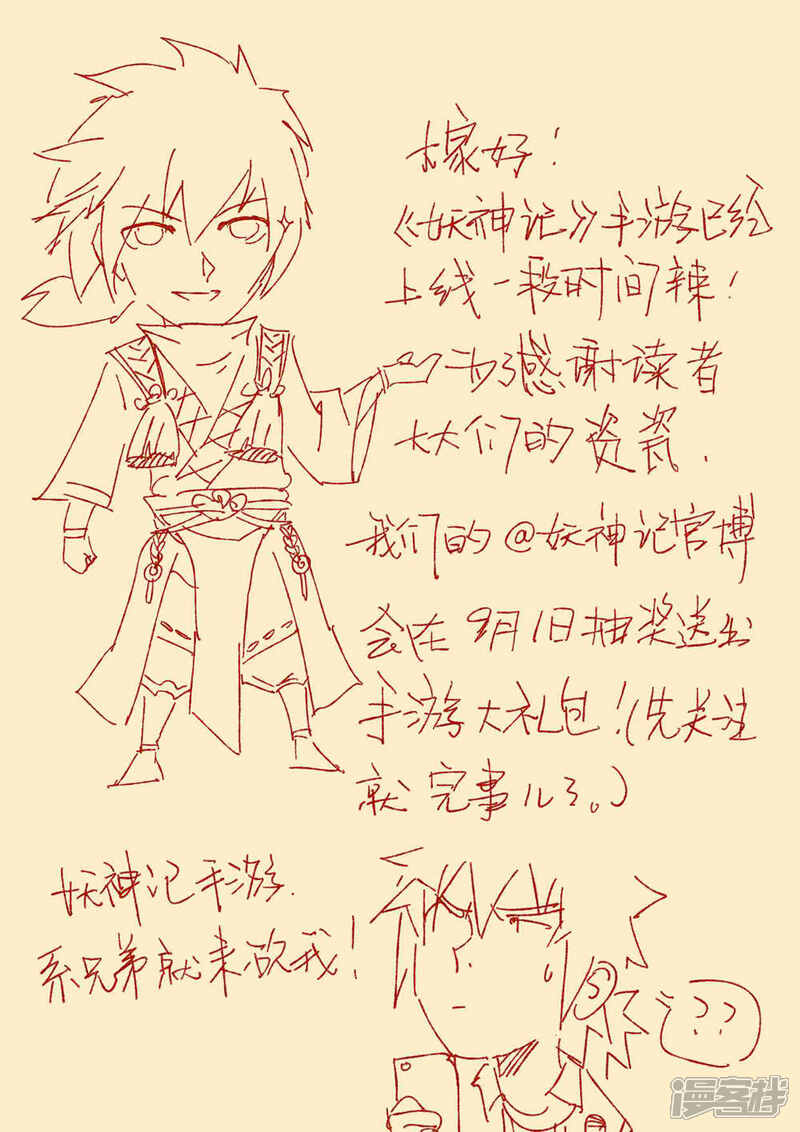 大家好！
《妖神记》手游已经
上线一段时间辣！
为了感谢读者
大大们的资瓷，
我们的@妖神记官博
会在9月1日抽奖送出
手游大礼包！（先关注
就完事儿了。）
妖神记手游，
系兄弟就来砍我！
？？
漫客栈